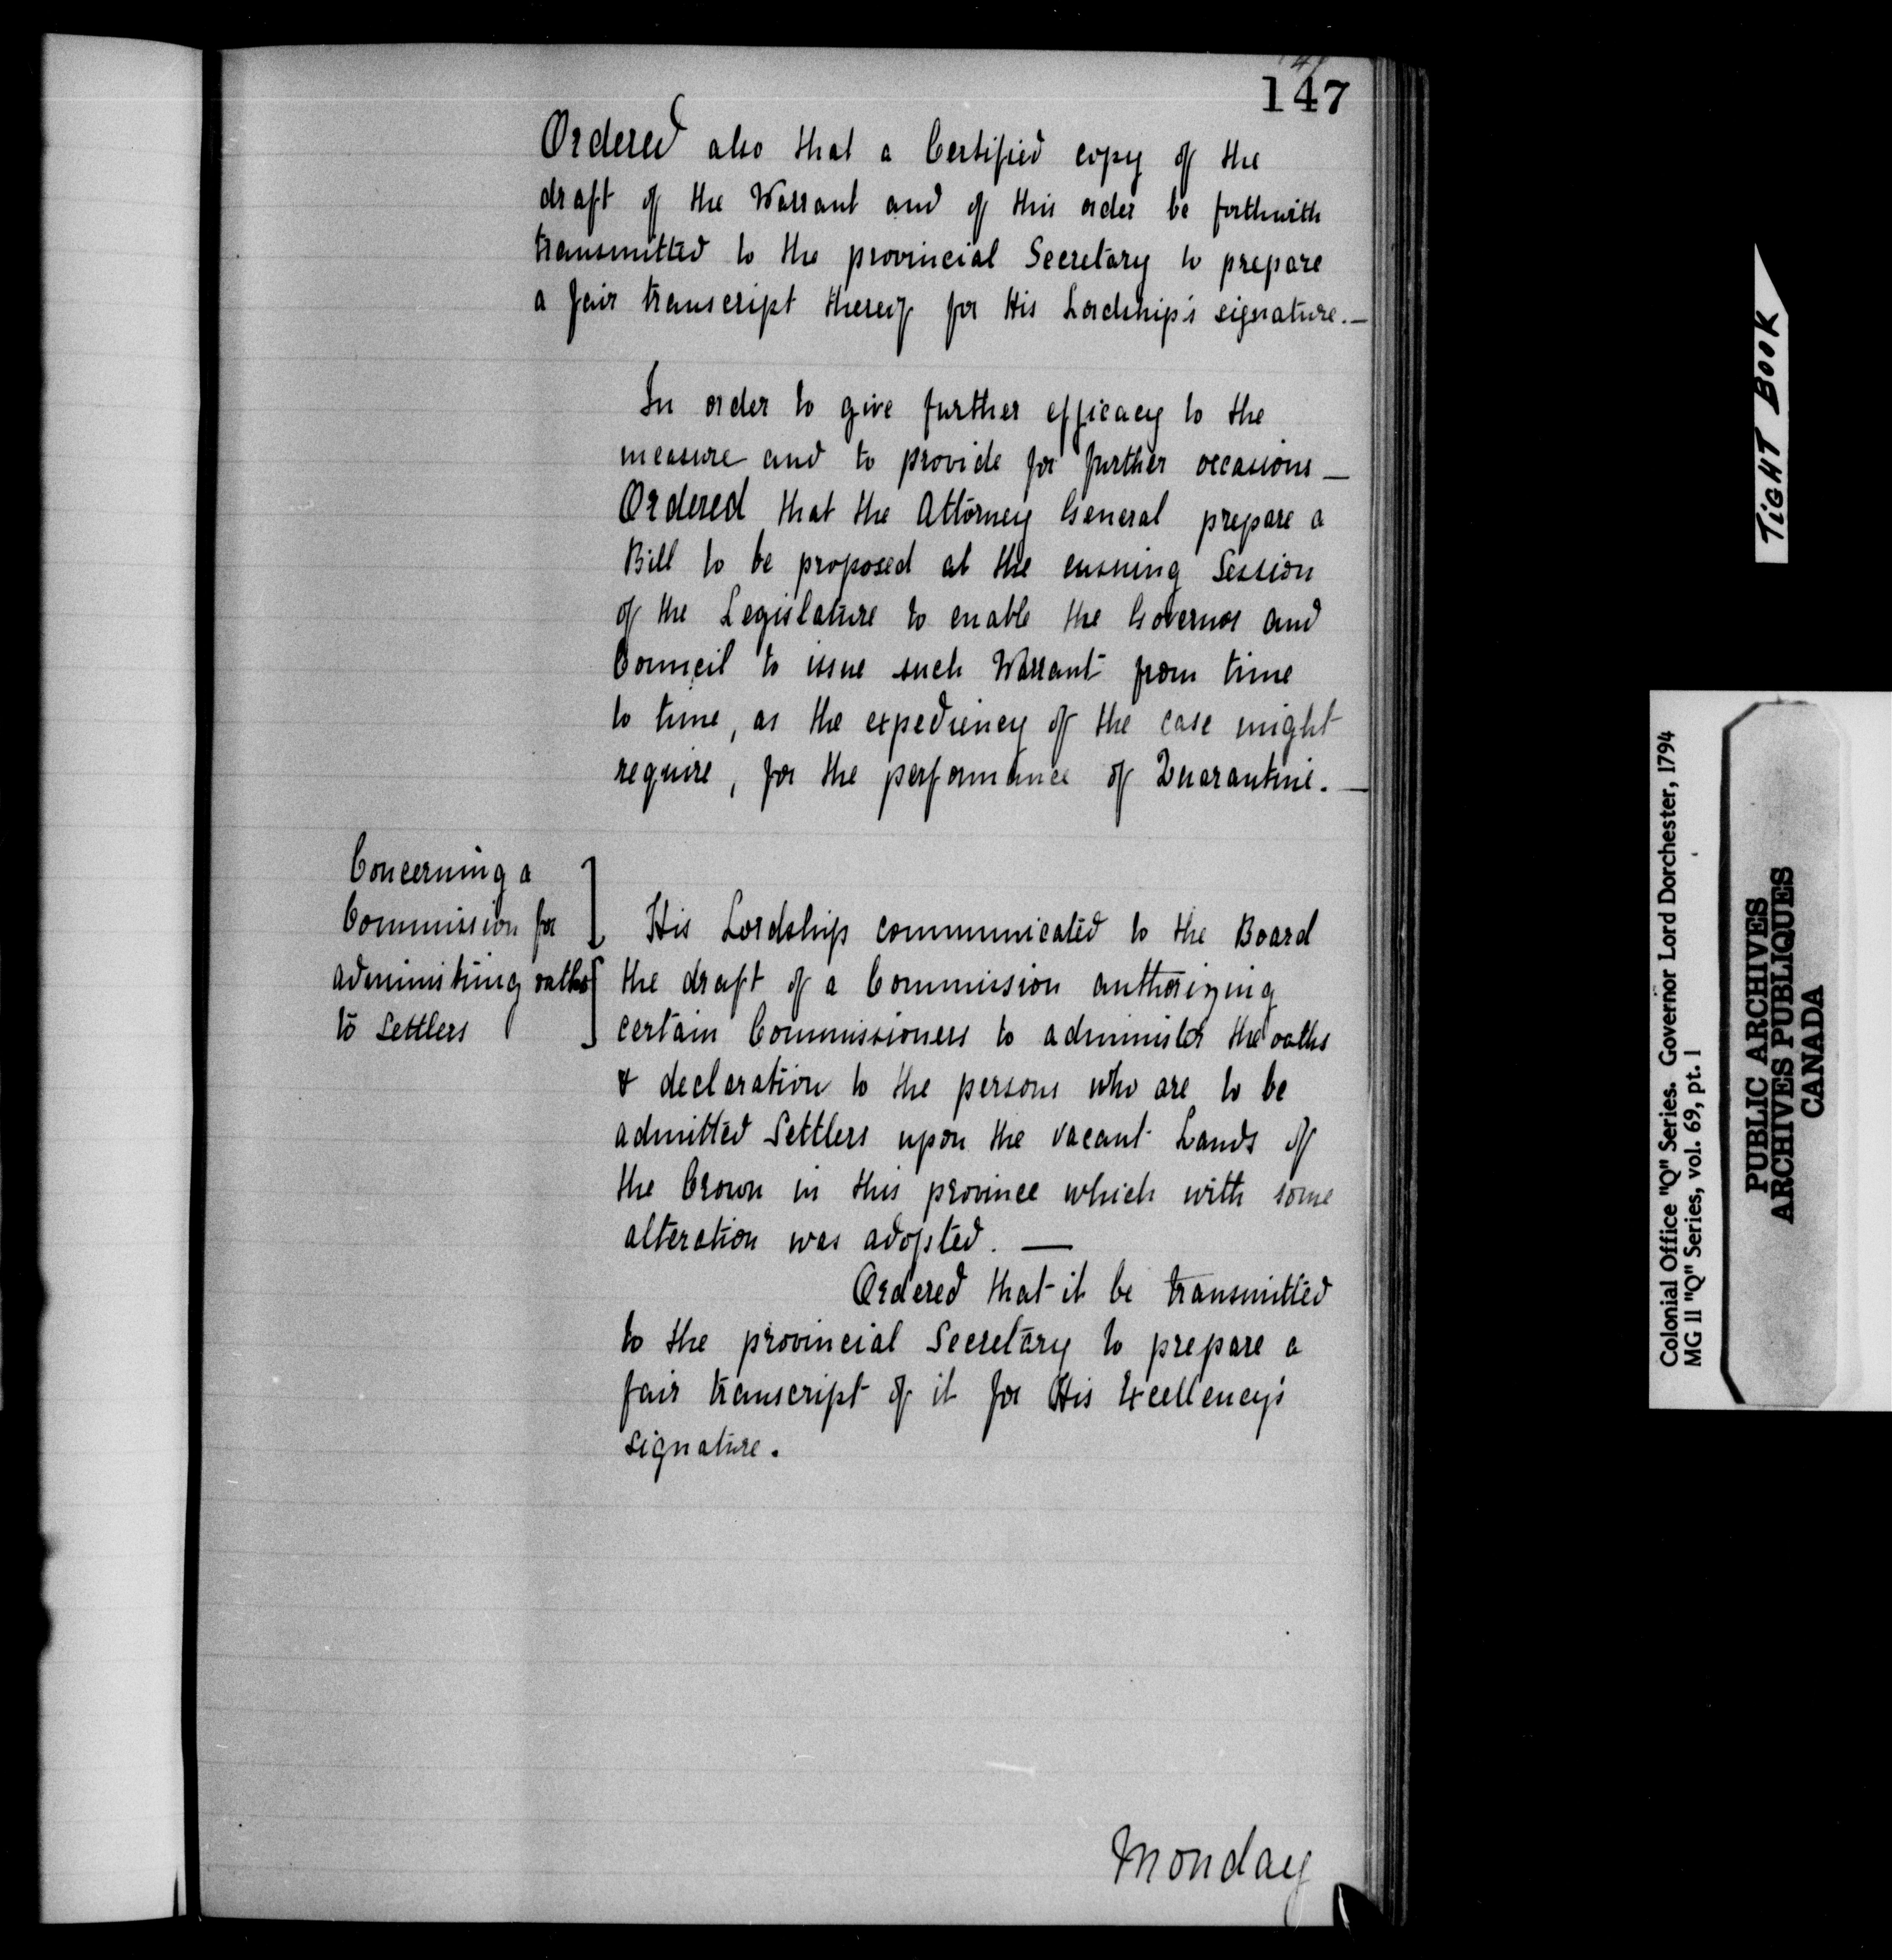 147
Ordered also that a Certified copy of the
draft of the Warrant and of this order be forthwith
transmitted to the provincial Secretary to prepare
a fair transcript thereof for His Lordship's signature.—
In order to give further efficacy to the
measure and to provide for further occasions —
Ordered that the Attorney General prepare a
Bill to be proposed at the ensuing Session
of the Legislature to enable the Governor and
Council to issue such Warrant from time
to time, as the expediency of the case might
require, for the performance of Quarantine. —
Concerning a
Commission for
administring oaths
to Settlers
His Lordship communicated to the Board
the draft of a Commission authorizing
certain Commissioners to administer the oaths
& declaration to the persons who are to be
admitted Settlers upon the vacant Lands of
the Crown in this province which with some
alteration was adopted. —
Ordered that it be transmitted
to the provincial Secretary to prepare a
fair transcript of it for His Excellency's
signature.
Monday
TIGHT BOOK
Colonial Office "Q" Series. Governor Lord Dorchester, 1794
MG 11 "Q" Series, vol. 69, pt. 1
PUBLIC ARCHIVES
ARCHIVES PUBLIQUES
CANADA